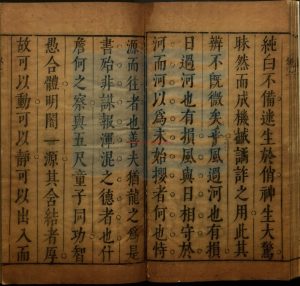 純白不備迷生於俏神生大驚
眛然而成機械譎詐之用此其
辨不既微矣乎風過河也有損
日過河也有損風與日相守於
河而河以為未始攖者何也恃
源而往者也善夫猶龍之為是
書殆非謀報渾混之德者也什
詹何之察與五尺童子同功智
愚合體明闇一源其含結者厚
故可以動可以靜可以出入而